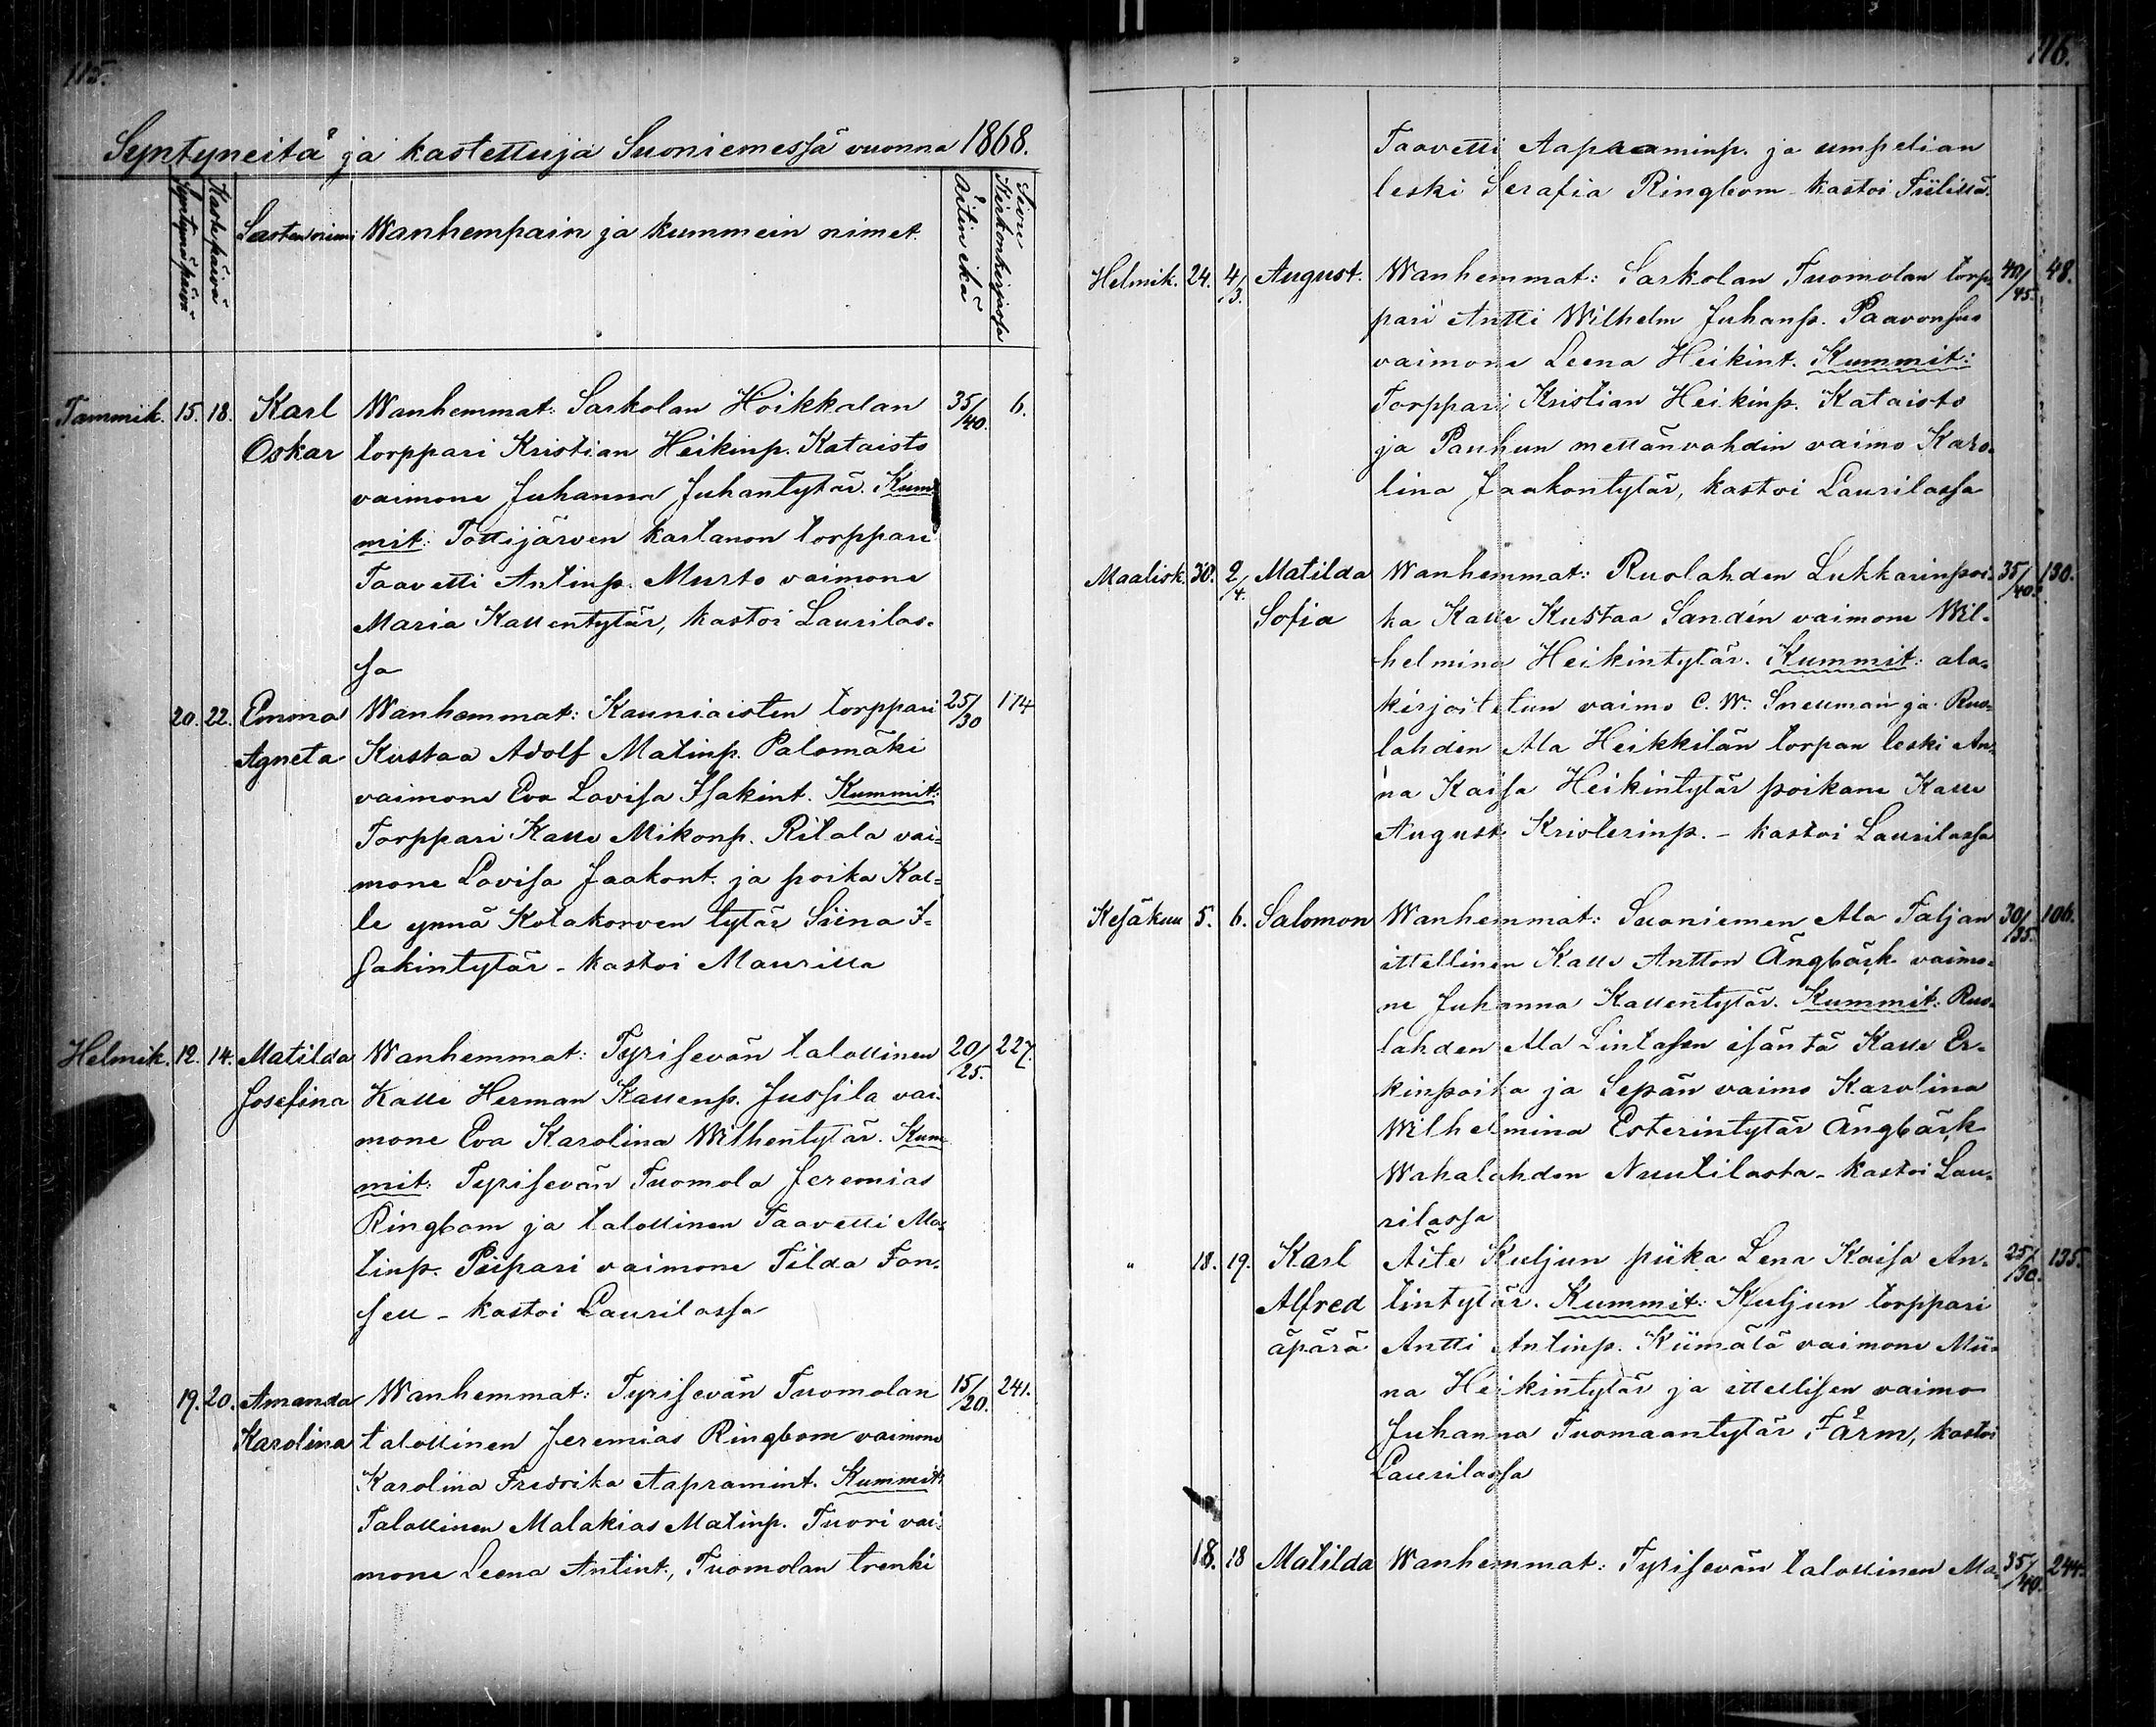 115.
Syntyneitä ja kastettuja Suoniemessä vuonna 1868.
Syntymäpäivä
Kastepäivä
Lasten nimi
Wanhempain ja kummein nimet.
Äitin ikä
Sivu Kirkonkirjassa
Tammik. 15. 18. Karl Wanhemmat: Sarkolan Hoikkalan 35/40. 6.
Oskar torppari Kristian Heikinp. Kataisto
vaimone Juhanna Juhantytär. Kum-
mit: Tottijärven kartanon torppari
Taavetti Antinp. Murto vaimone
Maria Kallentytär, kastoi Laurilas-
sa
20. 22. Emma Wanhemmat: Kauniaisten torppari 25/30 174
Agneta Kustaa Adolf Matinp. Palomäki
vaimone Eva Lovisa Isakint. Kummit:
Torppari Kalle Mikonp. Ritala vai-
mone Lovisa Jaakont. ja poika Kal-
le ynnä Kotakorven tytär Siina I-
sakintytär - kastoi Maurilla
Helmik. 12. 14. Matilda Wanhemmat: Tyrisevän talollinen 20/25. 227.
Josefina Kalle Herman Kallenp. Jussila vai-
mone Eva Karolina Wilhentytär. Kum-
mit: Tyrisevän Tuomola Jeremias
Ringbom ja talollinen Taavetti Ma-
tinp. Piipari vaimone Tilda Fon-
sell - kastoi Laurilassa
19. 20. Amanda Wanhemmat: Tyrisevän Tuomolan 15/20. 241.
Karolina talollinen Jeremias Ringbom vaimone
Karolina Fredrika Aapramint. Kummit:
Talollinen Malakias Matinp. Tuori vai-
mone Leena Antint., Tuomolan trenki
116.
Taavetti Aapraminp. ja umpelian
leski Serafia Ringbom - kastoi Tiilillä.
Helmik. 24. 4/3. August. Wanhemmat: Sarkolan Tuomolan torp- 40/45. 48.
pari Antti Wilhelm Juhanp. Paavonsuo
vaimone Leena Heikint. Kummit:
Torppari Kristian Heikinp. Kataisto
ja Pauhun mettänvahdin vaimo Karo-
lina Jaakontytär, kastoi Laurilassa
Maalisk. 30. 2/4. Matilda Wanhemmat: Ruolahden Lukkarinpoi- 35/40. 130.
Sofia ka Kalle Kustaa Sandén vaimone Wil-
helmina Heikintytär. Kummit: ala-
kirjoitetun vaimo C. W. Snellman ja Ruo-
lahden Ala Heikkilän torpan leski An-
na Kaisa Heikintytär poikane Kalle
August Kristerinp. - kastoi Laurilassa
Kesäkuu 5. 6. Salomon Wanhemmat: Suoniemen Ala Taljan 30/35. 106.
ittellinen Kalle Antton Ängbärk vaimo-
ne Juhanna Kallentytär. Kummit: Ruo-
lahden Ala Lintasen isäntä Kalle Er-
kinpoika ja Sepän vaimo Karolina
Wilhelmina Esterintytär Ängbärk
Wahalahden Nuutilasta - kastoi Lau-
rilassa
" 18. 19. Karl Äite Kuljun piika Lena Kaisa An- 25/30. 135.
Alfred tintytär. Kummit: Kuljun torppari
äpärä Antti Antinp. Kiimälä vaimone Mii-
na Heikintytär ja ittellisen vaimo
Juhanna Tuomaantytär Färm, kastoi
Laurilassa
18. 18 Matilda Wanhemmat: Tyrisevän talollinen Ma- 35/40. 244.